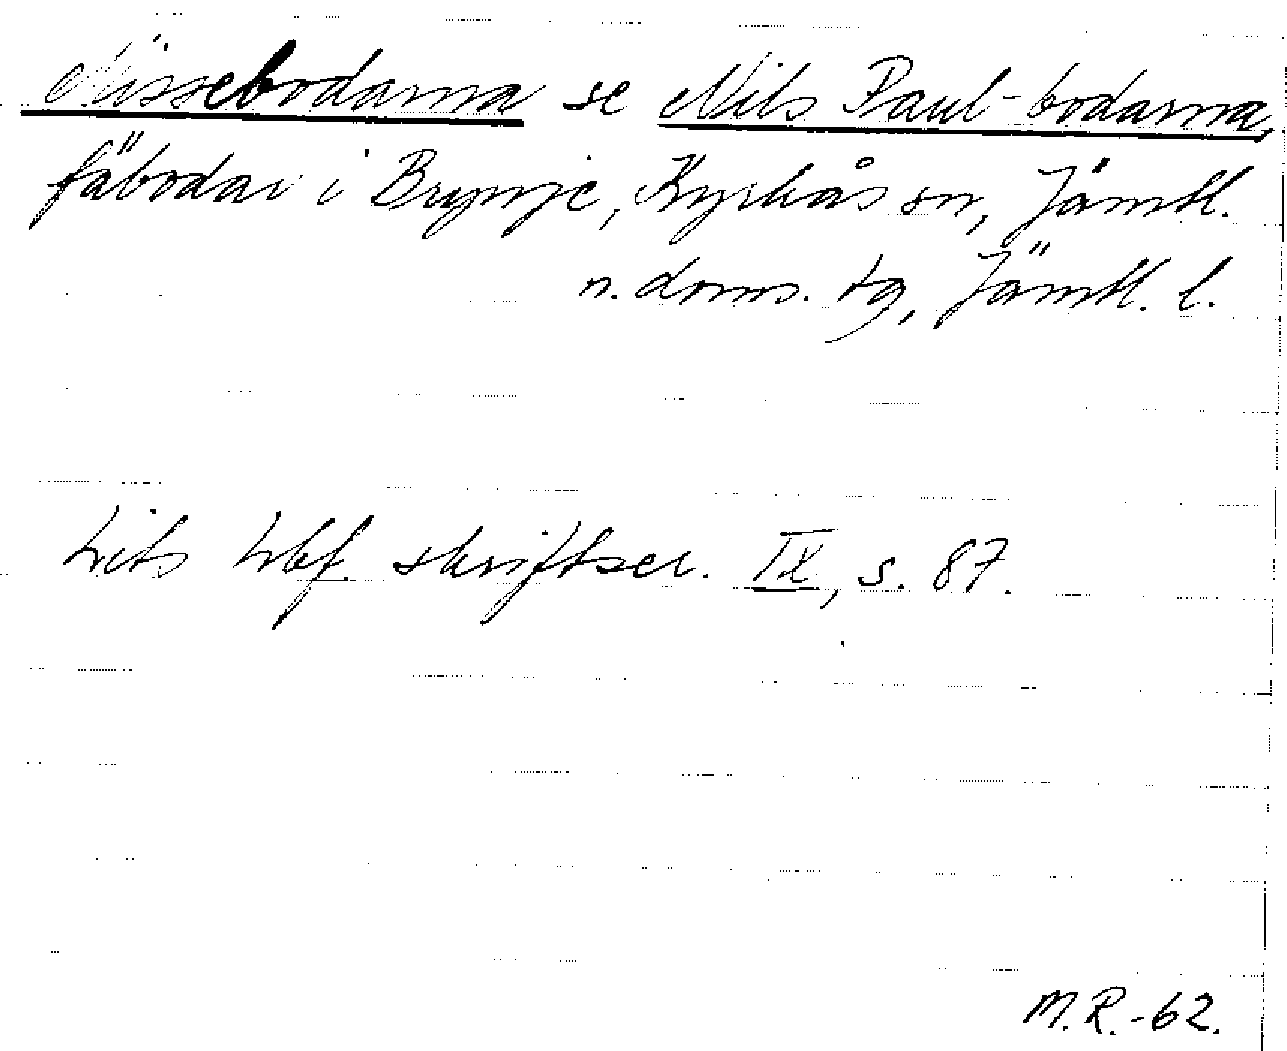 Nissebodarna se Nils Paul-bodarna,
fäbodar i Brynje, Kyrkås sn, Jämtl.
n. doms. tg, Jämtl. l.
Lits hbf. skriftser. IX, s. 87.
M.R.-62.